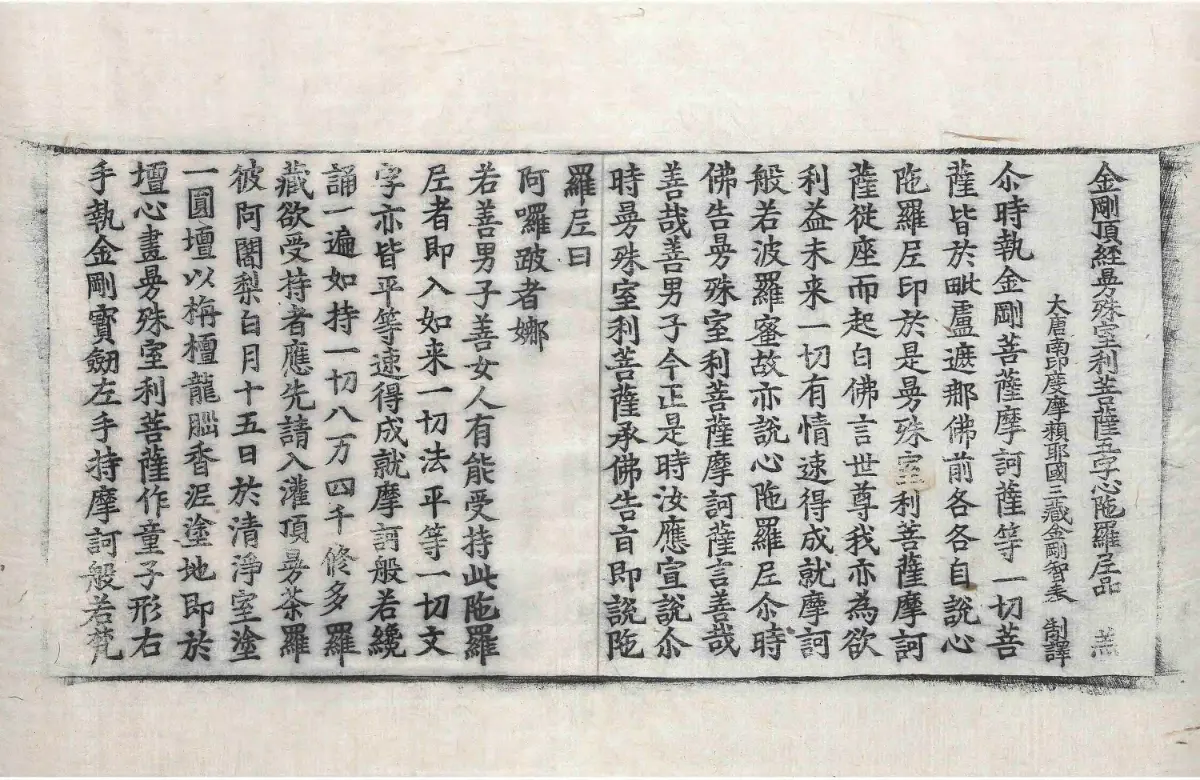 金剛頂經曼殊室利菩薩五字心陁羅尼品
羔
大唐南印度摩頼耶國三藏金剛智奉 制譯
尒時執金剛菩薩摩訶薩等一切菩
薩皆於毗盧遮那佛前各各自說心
陁羅尼印於是曼殊室利菩薩摩訶
薩從座而起白佛言世尊我亦為欲
利益未来一切有情速得成就摩訶
般若波羅蜜故亦說心陁羅尼尒時
佛告曼殊室利菩薩摩訶薩言善哉
善哉善男子今正是時汝應宣說尒
時曼殊室利菩薩承佛告旨即說陁
羅尼曰
阿囉跛者娜
若善男子善女人有能受持此陁羅
尼者即入如来一切法平等一切文
字亦皆平等速得成就摩訶般若纔
誦一遍如持一切八万四千修多羅
藏欲受持者應先請入灌頂曼茶羅
彼阿闍梨白月十五日於清淨室塗
一圓壇以栴檀龍腦香泥塗地即於
壇心畫曼殊室利菩薩作童子形右
手執金剛寶劒左手持摩訶般若梵